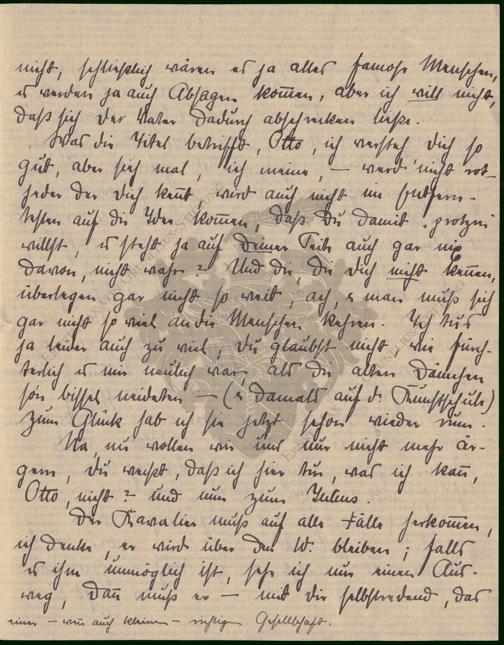 nicht, schließlich wären es ja alles famose Menschen,
es werden ja auch Absagen kom̄en, aber ich will nicht,
daß sich der Vater dadurch abschrecken ließe.
Was die Titel betrifft, Otto, ich versteh dich so
gut, aber sieh mal, ich meine, – werd' nicht rot –
jeder der dich ken̄t, wird auch nicht im
auf die Idee kom̄en, daß Du damit protzen
willst, es steht ja auf Deiner Seite auch gar nix
davon, nicht wahr? Und die, die dich nicht kennen,
überlegen gar nicht so weit, ach, & man muß sich
gar nicht so viel an die Menschen kehren. Ich tu's
ja leider auch zu viel, du glaubst nicht, wie fürch-
terlich es mir neulich war, als die alten Dämchen
so'n bissel – (& damals auf d. Kunstschule)
zum Glück hab ich sie jetzt schon wieder
Na, wir wollen wir uns nur nicht mehr är-
gern, du weißt, daß ich hier tu, was ich kan̄,
Otto, nicht? und nun zum
Der Kavalier muß auf alle Fälle herkom̄en,
ich denke, er wird über den W. bleiben; falls
es ihm unmöglich ist, sehe ich nur einen Aus-
weg, dan̄ muß er – mit dir selbstredend, das
eine – wen̄ auch kleinen – richtigen Gesellschaft.